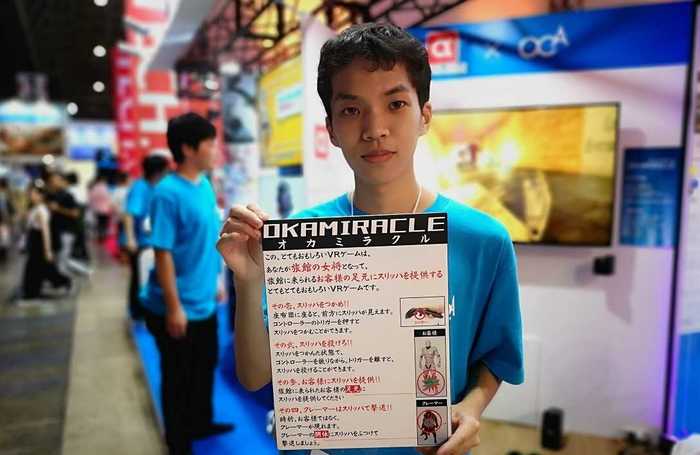 OCA
OKAMIRACLE
オカミラクル
この、とてもおもしろいVRゲームは、
あなたが旅館の女将となって、
旅館に来られるお客様の足元にスリッパを提供する
とてもとてもおもしろいVRゲームです。
その壱、スリッパをつかめ!!
座布団に座ると、前方にスリッパが見えます。
コントローラーのトリガーを押すと
スリッパをつかむことができます。
その弐、スリッパを投げろ!!
スリッパをつかんだ状態で、
コントローラーを振りながら、トリガーを離すと、
スリッパを投げることができます。
お客様
その参、お客様にスリッパを提供!!
旅館に来られたお客様の足元に
スリッパを提供してください
その四、クレーマーはスリッパで撃退!!
時折、お客様ではなく、
クレーマーが現れます。
クレーマーの顔体にスリッパをぶつけて
撃退しましょう。
クレーマー